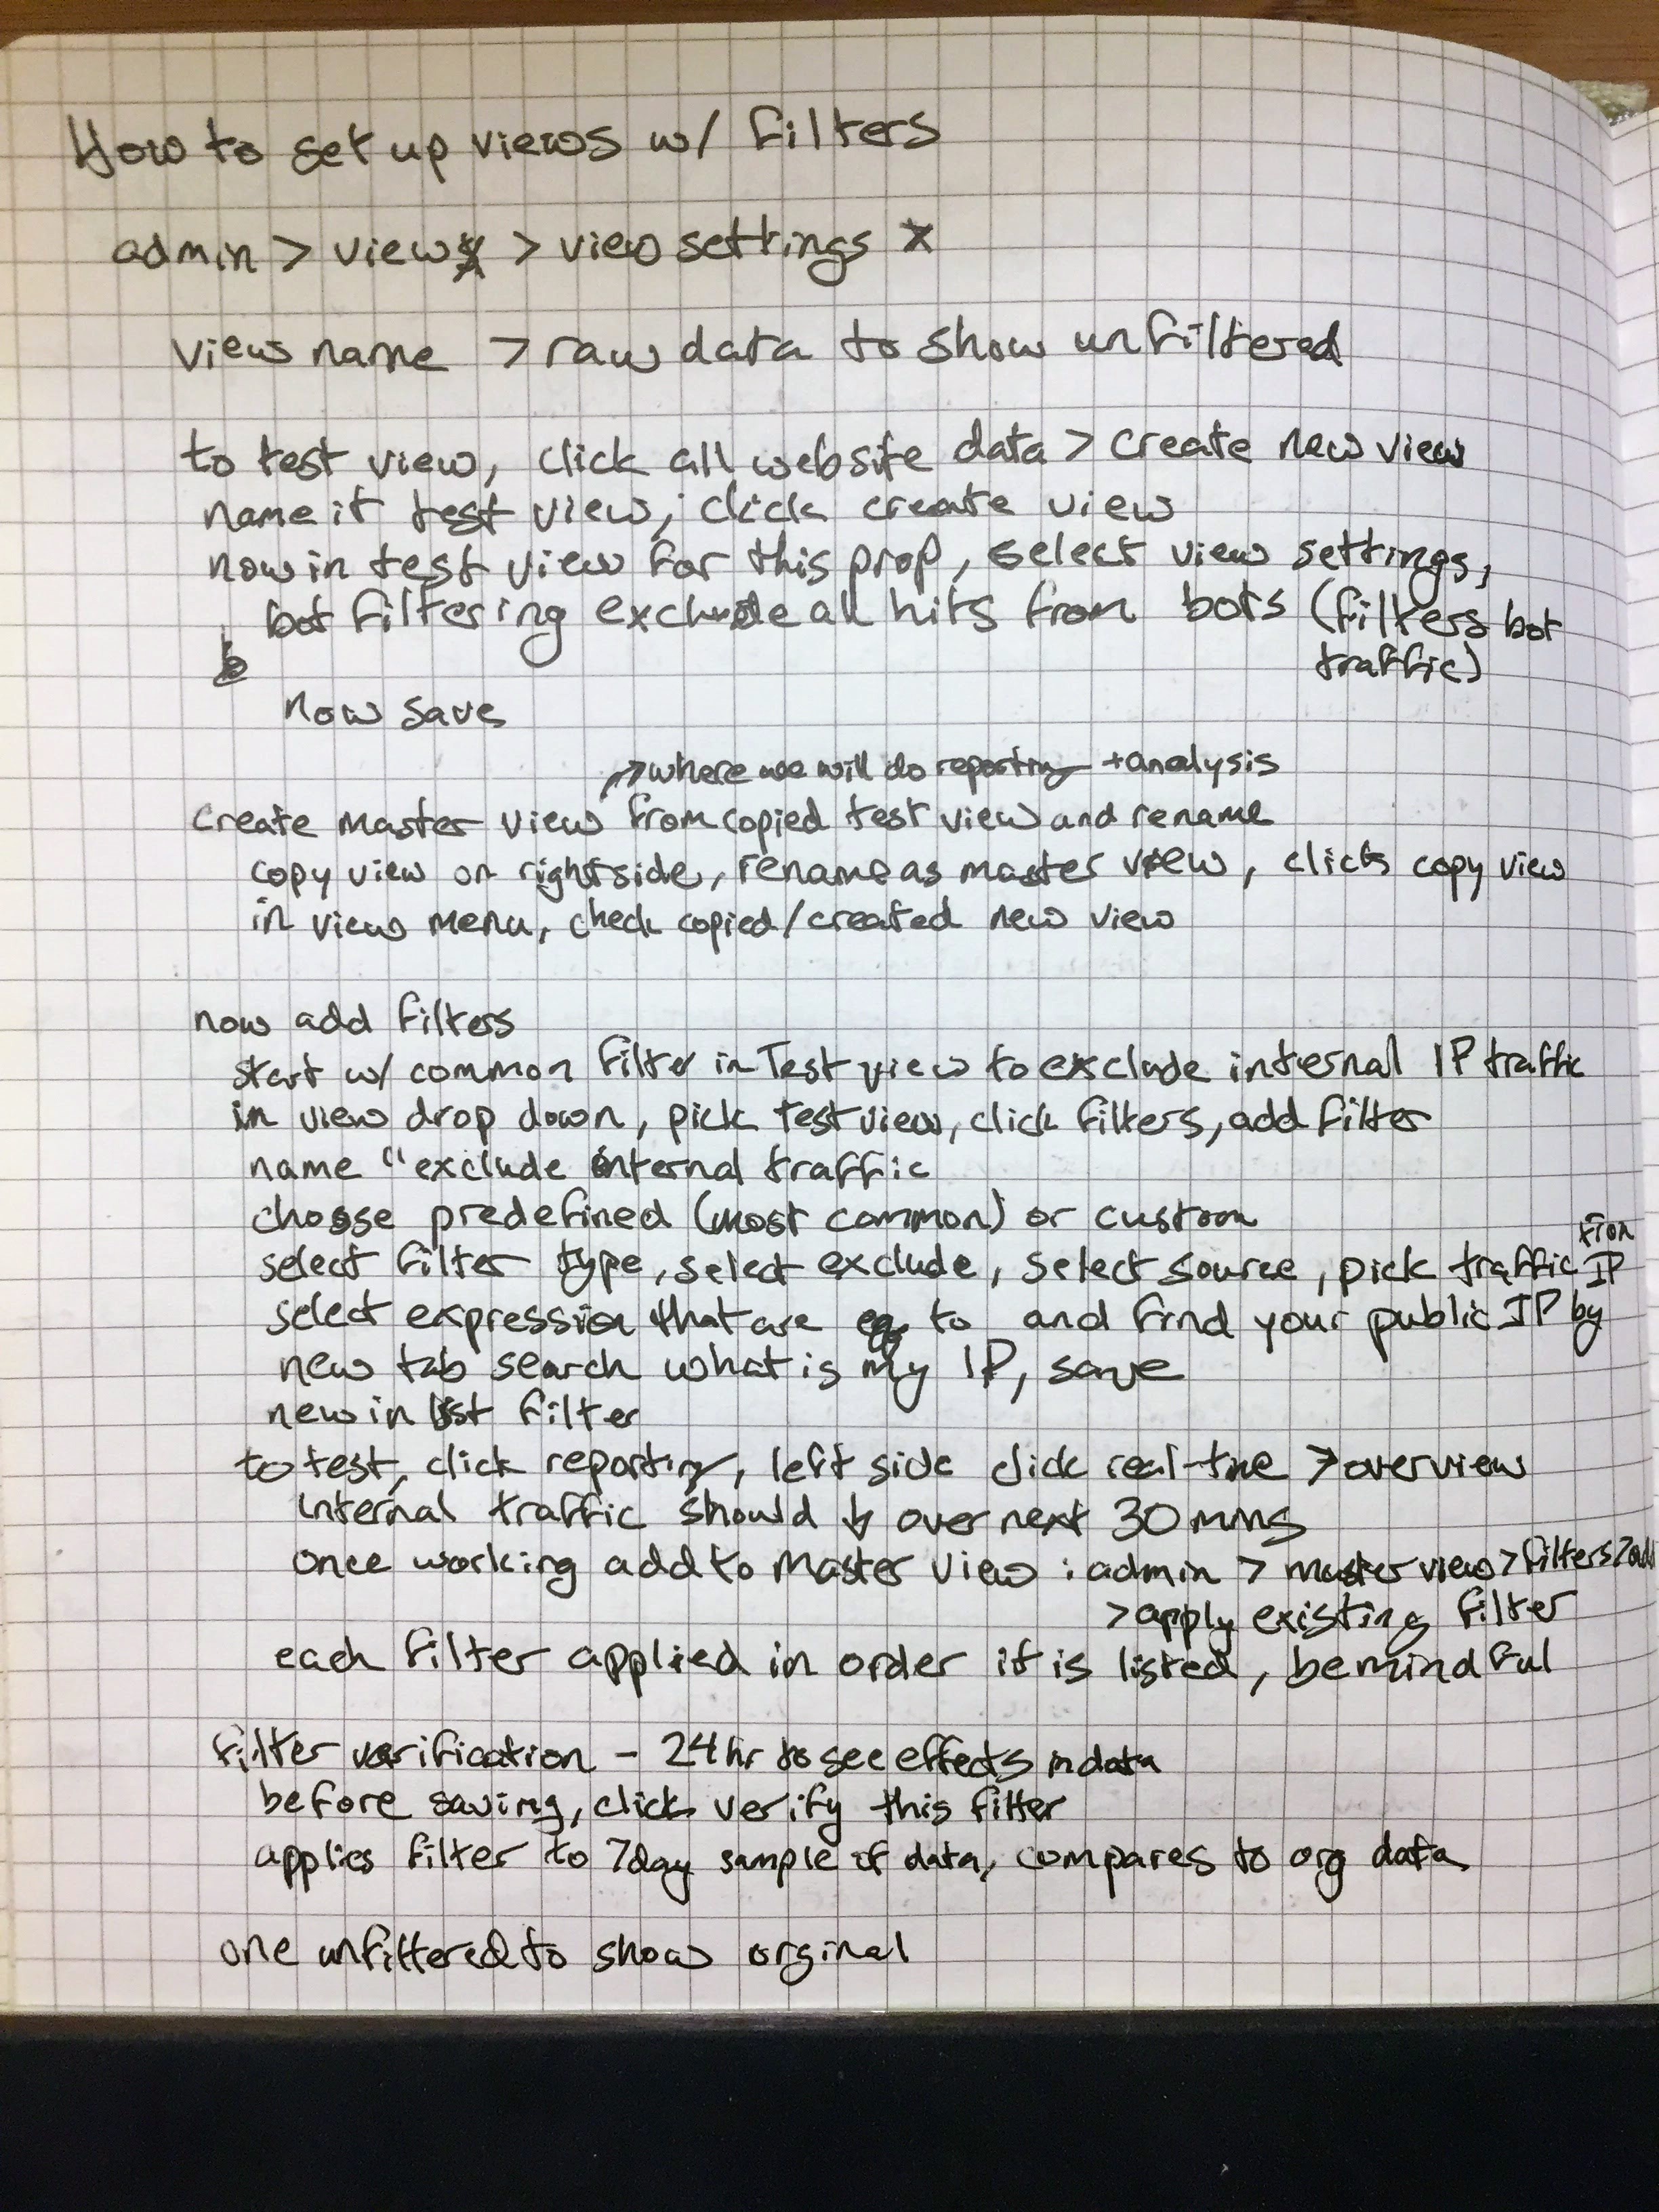 How to set up views w/ filters
admin > view > view settings *
view name > raw data to show unfiltered
to test view, click all website data > create new view
name it test view, click create view
now in test view for this prop, select view settings,
bot filtering exclude all hits from bots (filters bot
traffic)
now save
↗ where we will do reporting + analysis
create master view from copied test view and rename
copy view on right side, rename as master view, click copy view
in view menu, check copied/created new view
now add filters
start w/ common filter in Test view to exclude internal IP traffic
in view drop down, pick test view, click filters, add filter
name "exclude internal traffic
choose predefined (most common) or custom
select filter type, select exclude, select source, pick traffic from IP
select expression that are eq to and find your public IP by
new tab search what is my IP, save
new in list filter
to test, click reporting, left side click real-time > overview
internal traffic should ↓ over next 30 mins
once working add to Master view : admin > master view > filters > add
> apply existing filter
each filter applied in order it is listed, be mindful
filter verification - 24 hr to see effects in data
before saving, click verify this filter
applies filter to 7 day sample of data, compares to org data
one unfiltered to show orginal